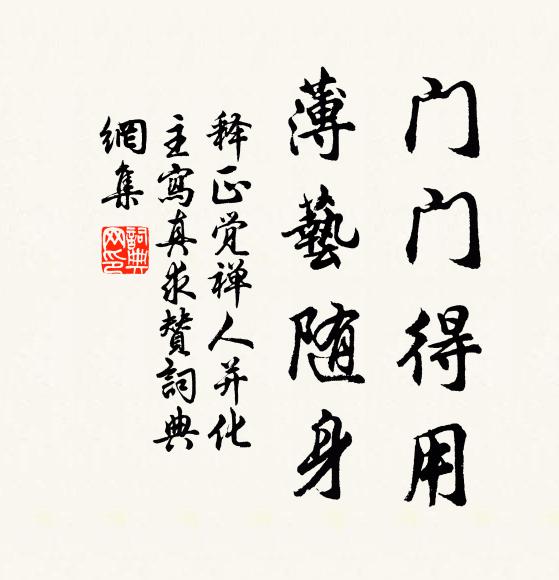 门门得用
薄藝随身
释正觉禅人并化
主寫真求赞詞典
網集
詞典網印